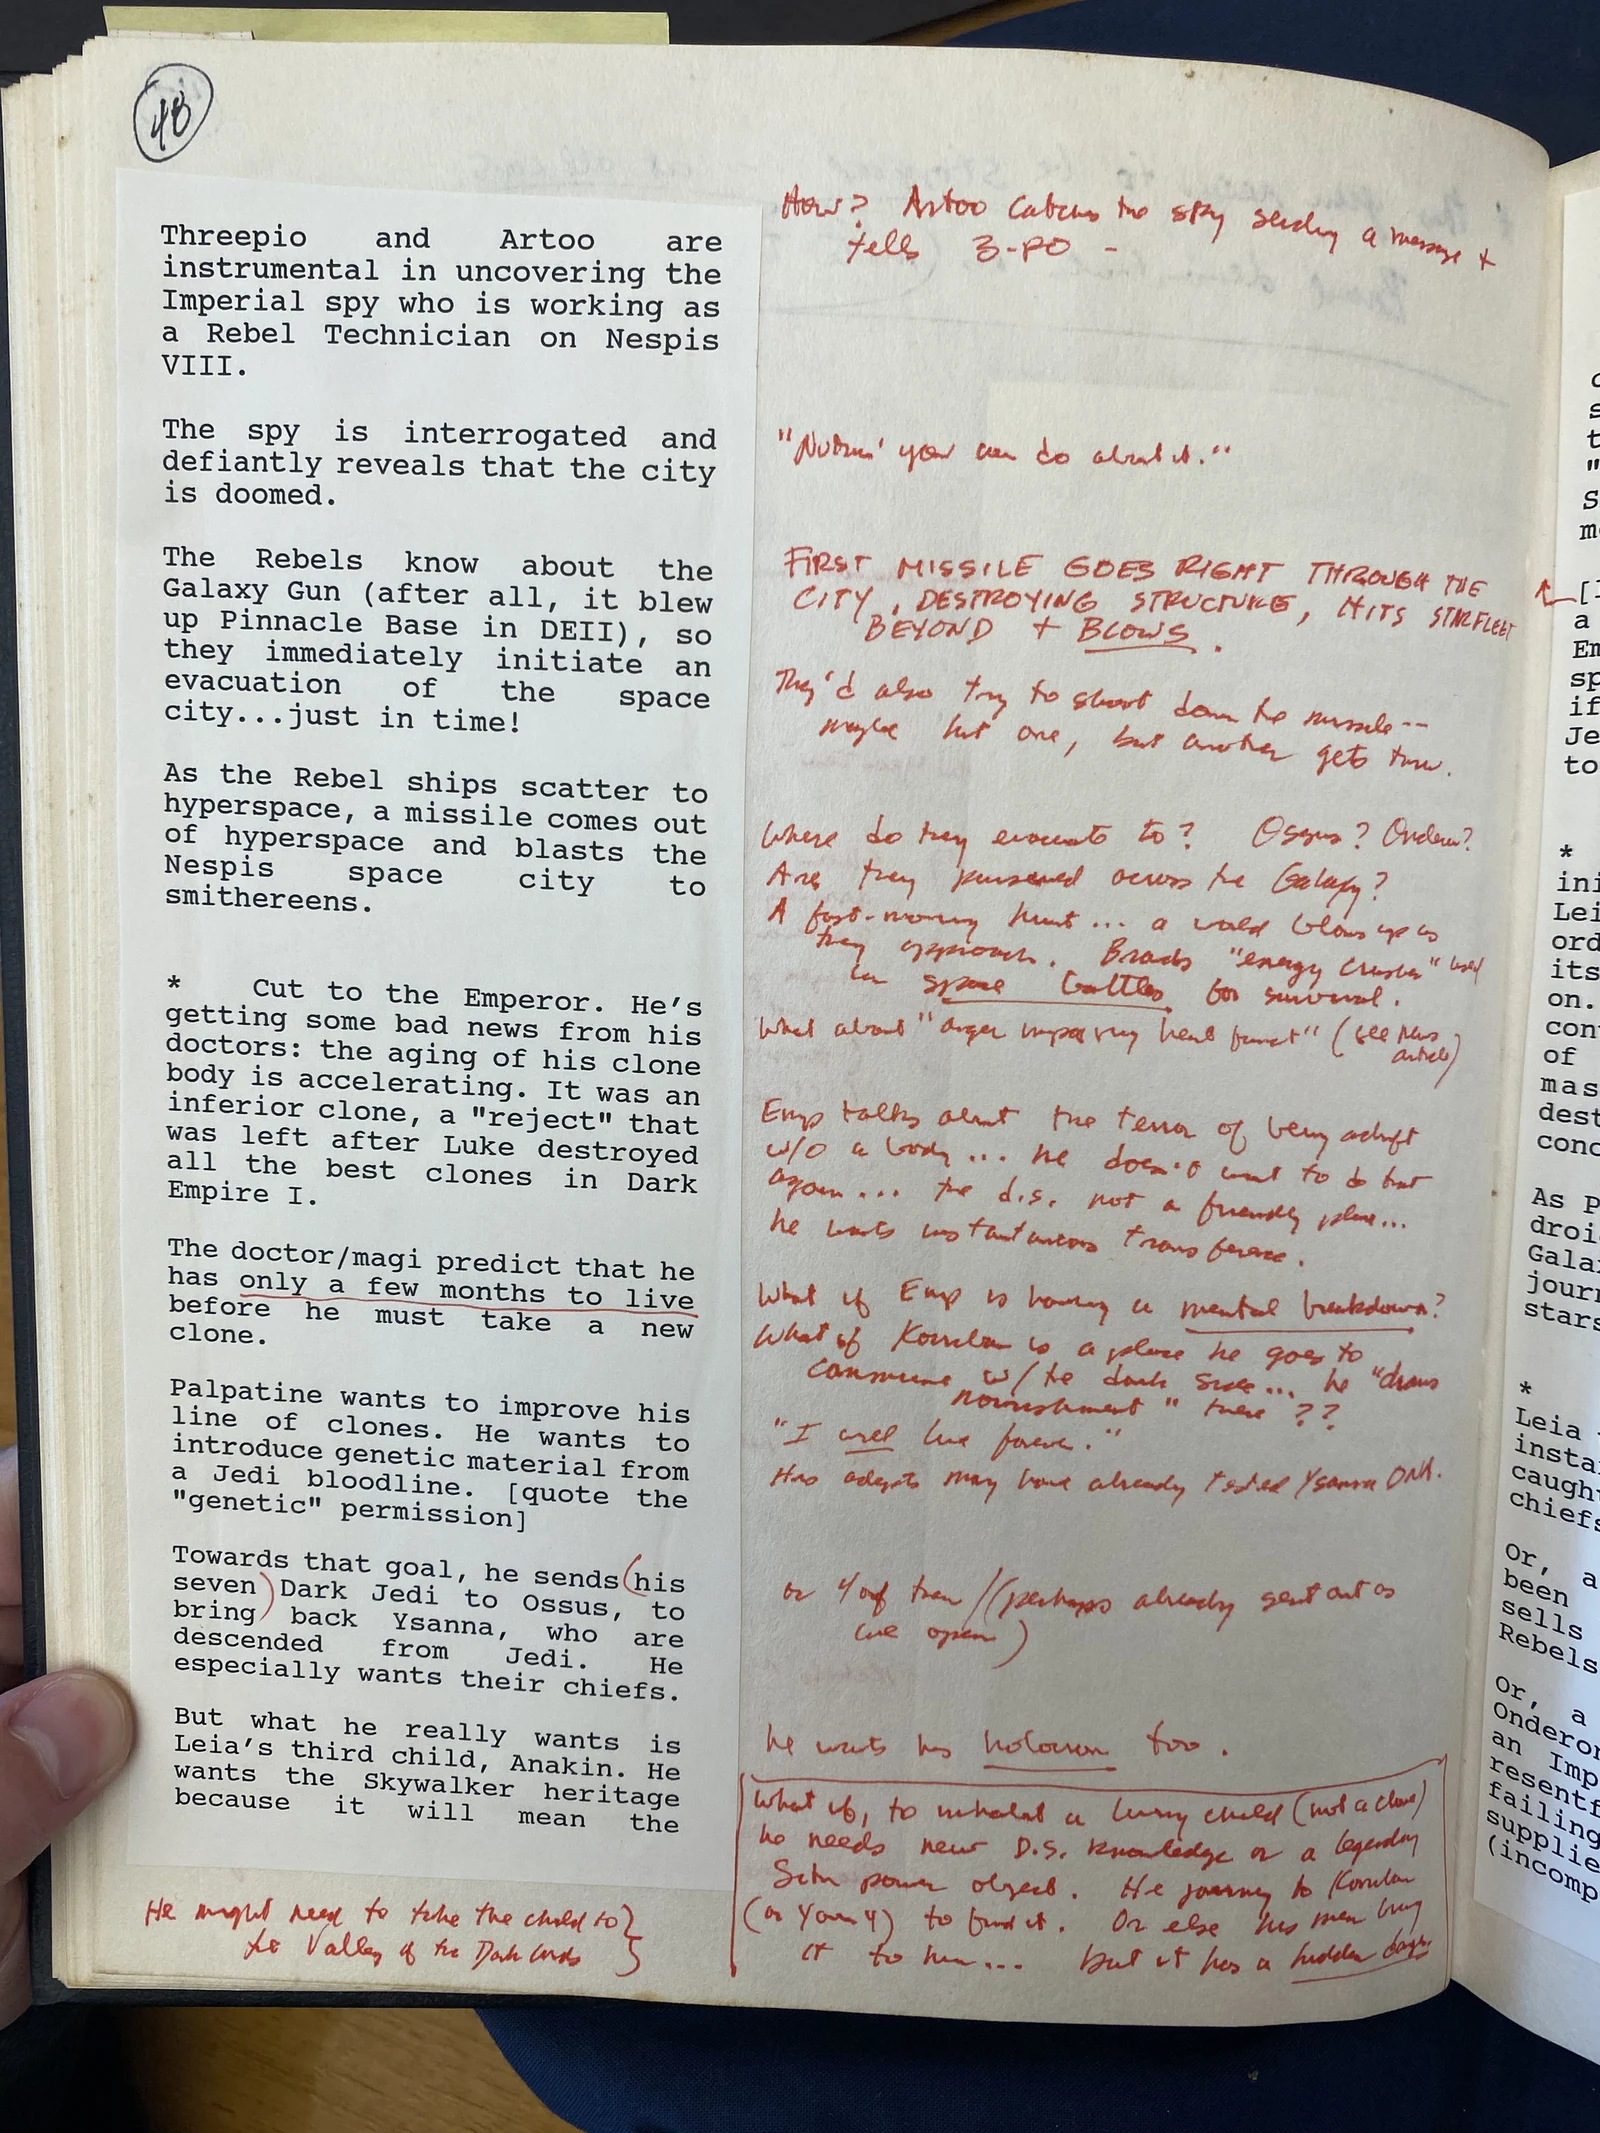 48
Threepio and Artoo are
instrumental in uncovering the
Imperial spy who is working as
a Rebel Technician on Nespis
VIII.
How? Artoo catches the spy sending a message +
tells 3-PO -
The spy is interrogated and
defiantly reveals that the city
is doomed.
"Nothin' you can do about it."
The Rebels know about the
Galaxy Gun (after all, it blew
up Pinnacle Base in DEII), so
they immediately initiate an
evacuation of the space
city...just in time!
FIRST MISSILE GOES RIGHT THROUGH THE
CITY, DESTROYING STRUCTURE, HITS STARFLEET
BEYOND + BLOWS.
They'd also try to shoot down the missile--
maybe hit one, but another gets thru.
As the Rebel ships scatter to
hyperspace, a missile comes out
of hyperspace and blasts the
Nespis space city to
smithereens.
Where do they evacuate to? Ossus? Onderon?
Are they pursued across the Galaxy?
A fast-moving hunt... a world blows up as
they approach. Brand's "energy crusher" used
in space battles for survival.
What about "anger impairing heart funct" (see news
article)
* Cut to the Emperor. He's
getting some bad news from his
doctors: the aging of his clone
body is accelerating. It was an
inferior clone, a "reject" that
was left after Luke destroyed
all the best clones in Dark
Empire I.
Emp talks about the terror of being adrift
w/o a body... he doesn't want to do that
again... the d.s. not a friendly place...
he wants instantaneous transference.
The doctor/magi predict that he
has only a few months to live
before he must take a new
clone.
What if Emp is having a mental breakdown?
What if Korriban is a place he goes to
commune w/ the dark side... he "draws
nourishment" there ??
Palpatine wants to improve his
line of clones. He wants to
introduce genetic material from
a Jedi bloodline. [quote the
"genetic" permission]
"I will live forever."
His adepts may have already tested Ysanna DNA.
Towards that goal, he sends (his
seven) Dark Jedi to Ossus, to
bring back Ysanna, who are
descended from Jedi. He
especially wants their chiefs.
or 4 of them / (perhaps already sent out as
we open)
But what he really wants is
Leia's third child, Anakin. He
wants the Skywalker heritage
because it will mean the
he wants his holocron too.
What if, to inhabit a living child (not a clone)
he needs new D.S. knowledge or a legendary
Sith power object. He journeys to Korriban
(or Yavin 4) to find it. Or else his men bring
it to him... but it has a hidden danger.
He might need to take the child to }
the Valley of the Dark Lords
[
a
Em
sp
if
Je
to
*
ini
Lei
ord
its
on.
con
of
mas
dest
conc
As P
droi
Gala
jour
stars
*
Leia
insta
caugh
chiefs
Or, a
been
sells
Rebels
Or, a
Onderon
an Imp
resentf
failing
supplie
(incomp